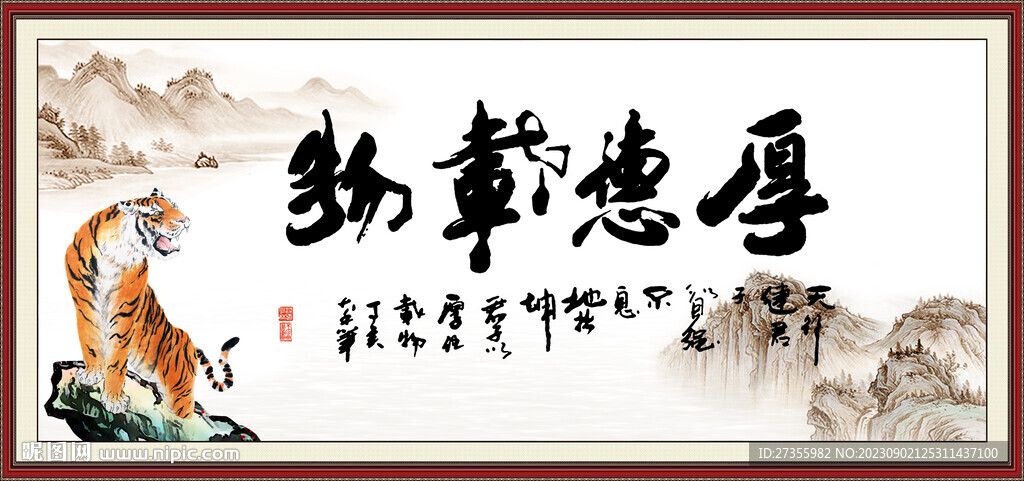 厚德載物
天行
健君
子
以自强
不
息
地势
坤
君子以
厚德
載物
丁亥
昵图网 www.nipic.com
ID:27355982 NO:20230902125311437100